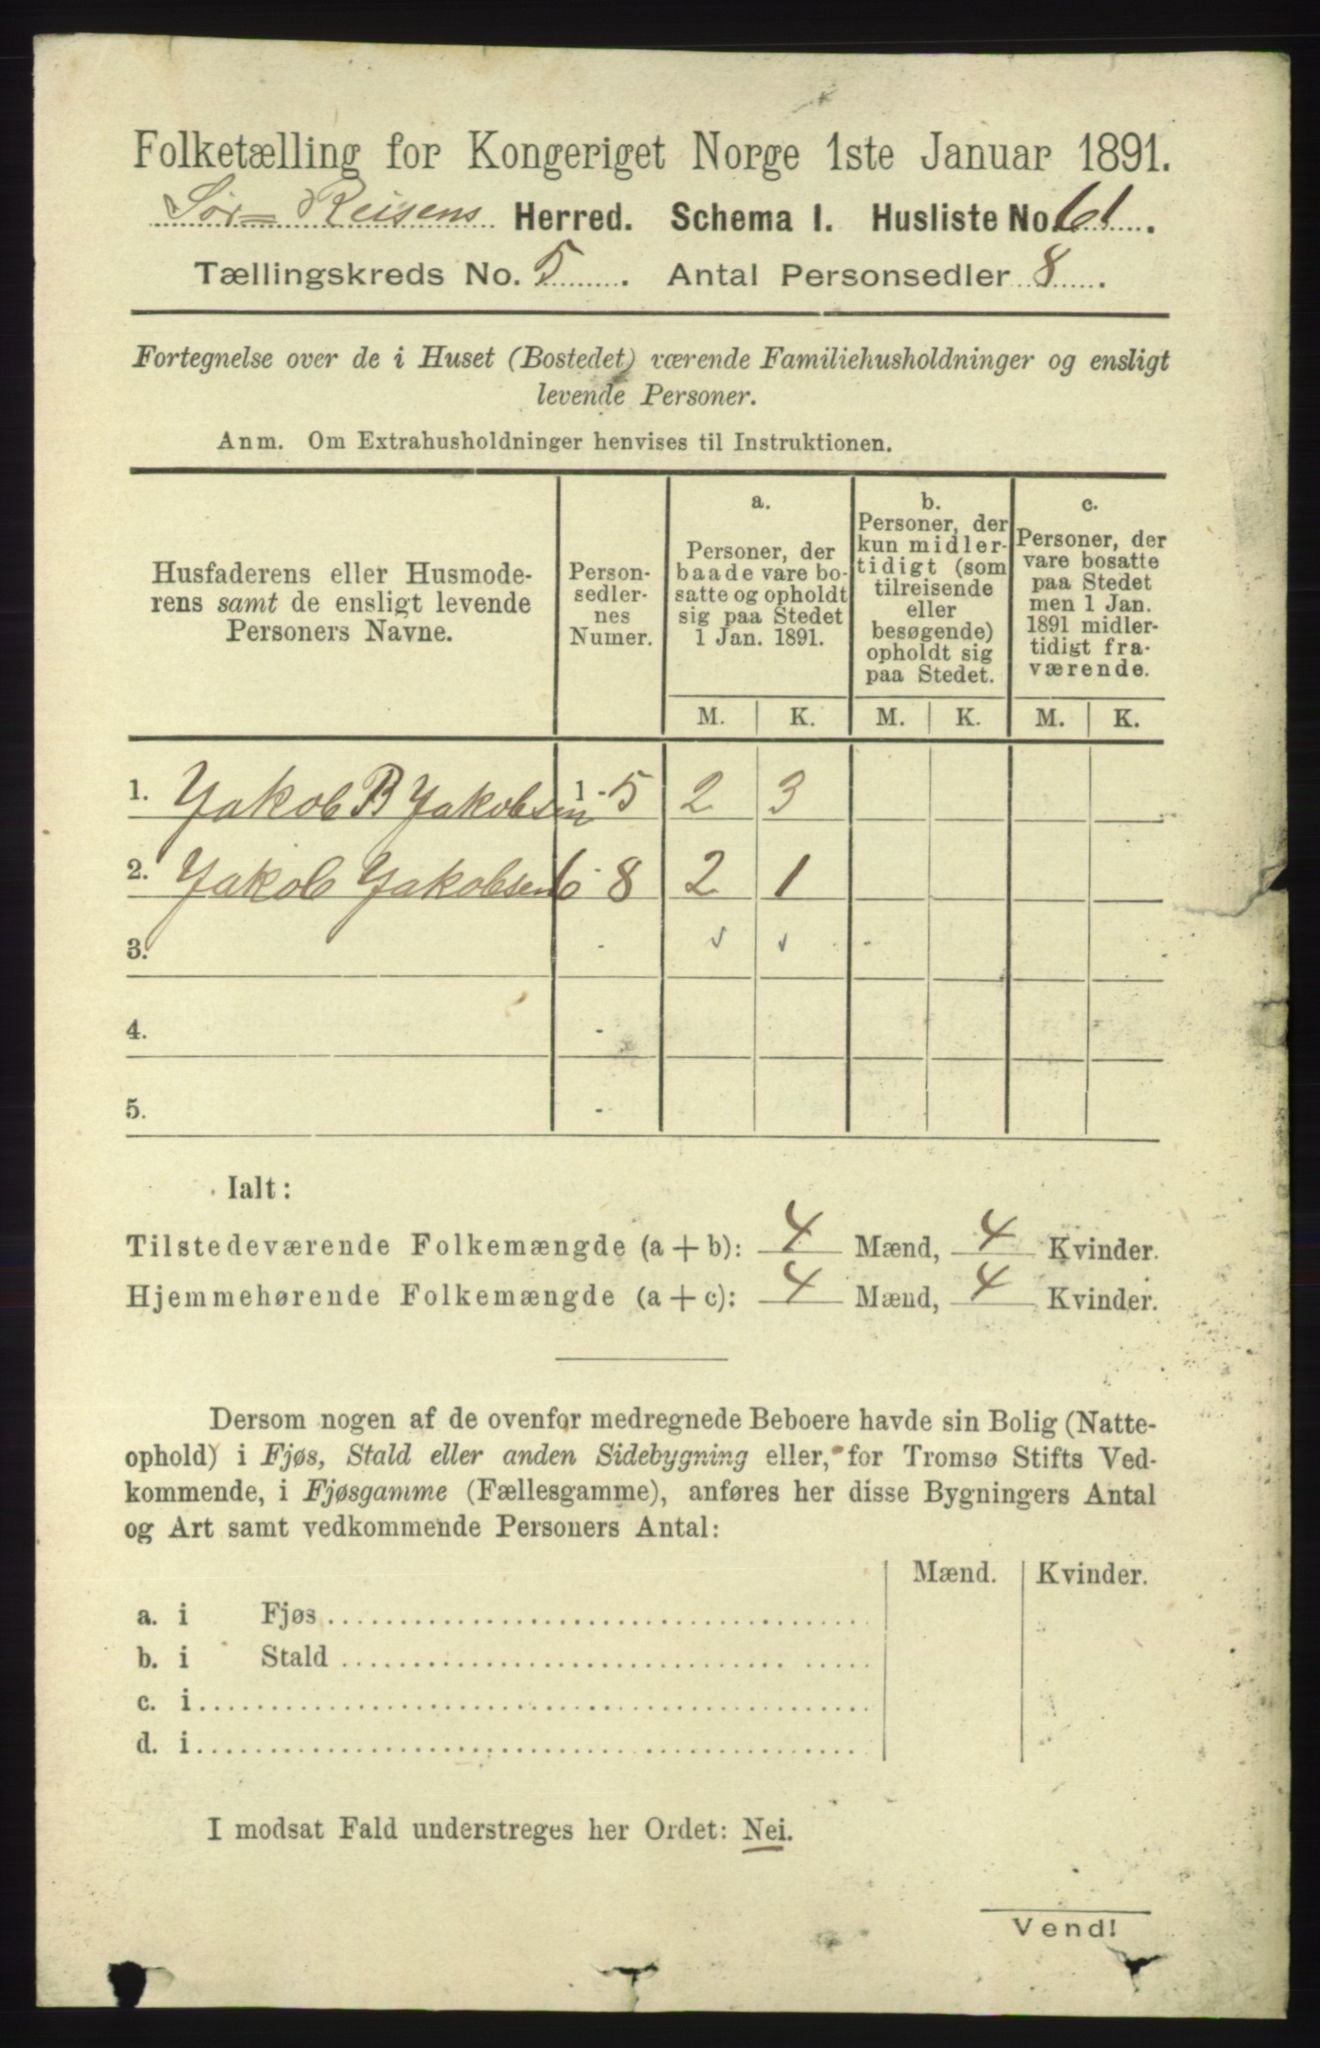 Folketælling for Kongeriget Norge 1ste Januar 1891.
Sør-Reisens Herred. Schema I. Husliste No. 61.
Tællingskreds No. 5. Antal Personsedler 8.
Fortegnelse over de i Huset (Bostedet) værende Familiehusholdninger og ensligt
levende Personer.
Anm. Om Extrahusholdninger henvises til Instruktionen.
Husfaderens eller Husmode-
rens samt de ensligt levende
Personers Navne.
Person-
sedler-
nes
Numer.
a.
Personer, der
baade vare bo-
satte og opholdt
sig paa Stedet
1 Jan. 1891.
b.
Personer, der
kun midler-
tidigt (som
tilreisende
eller
besøgende)
opholdt sig
paa Stedet.
c.
Personer, der
vare bosatte
paa Stedet
men 1 Jan.
1891 midler-
tidigt fra-
værende.
M. K. M. K. M. K.
1. Jakob B Jakobsen 1-5 2 3
2. Jakob Jakobsen 6-8 2 1
3. - ✓ ✓
4. -
5. -
Ialt:
Tilstedeværende Folkemængde (a + b): 4 Mænd, 4 Kvinder.
Hjemmehørende Folkemængde (a + c): 4 Mænd, 4 Kvinder.
Dersom nogen af de ovenfor medregnede Beboere havde sin Bolig (Natte-
ophold) i Fjøs, Stald eller anden Sidebygning eller, for Tromsø Stifts Ved-
kommende, i Fjøsgamme (Fællesgamme), anføres her disse Bygningers Antal
og Art samt vedkommende Personers Antal:
Mænd. Kvinder.
a. i Fjøs
b. i Stald
c. i
d. i
I modsat Fald understreges her Ordet: Nei.
Vend!